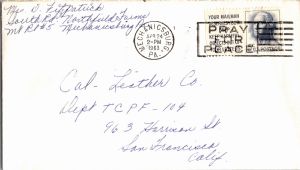 Mr. D. Fitzpatrick
South Rd. Northfield Farms
Mt Rt #5 Mechanicsburg
MECHANICSBURG,
APR 24
2-PM
1963
PA.
YOUR MAILMAN
PRAY
FOR
PEACE
Cal-Leather Co.
Dept TCPF-109
963 Harrison St
San Francisco
Calif.